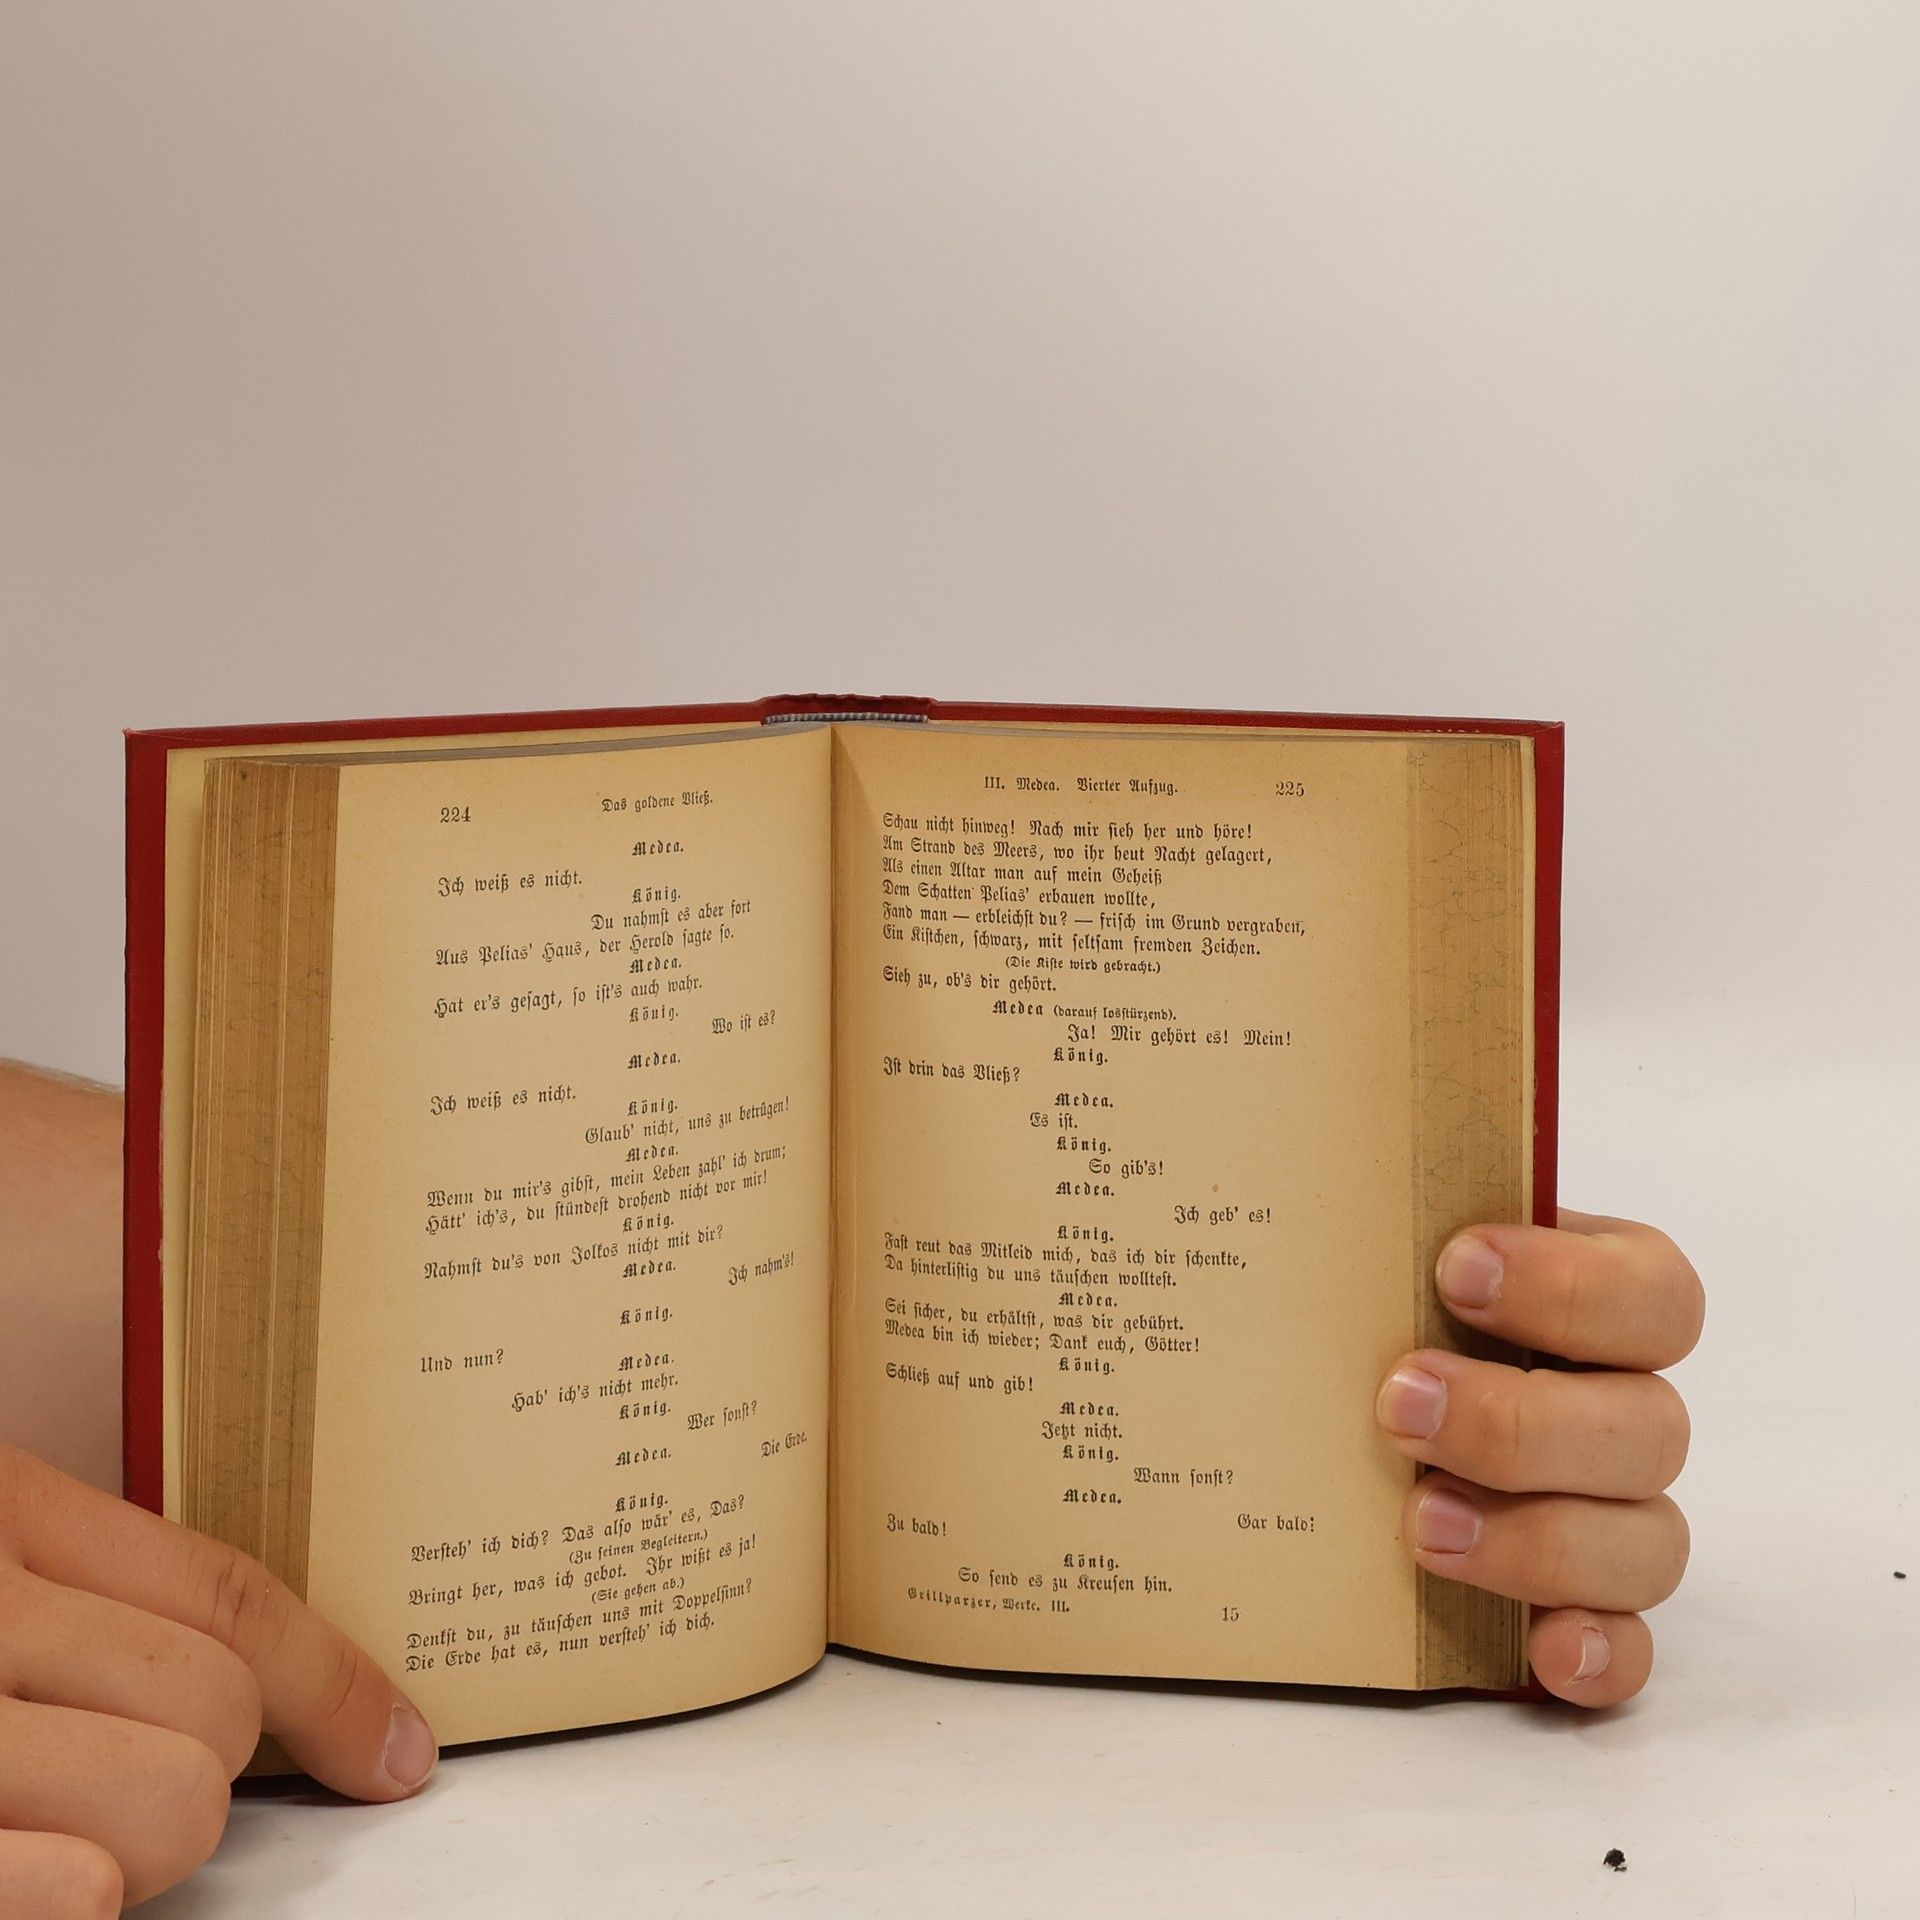 224
Das goldene Vließ.
Medea.
Ich weiß es nicht.
König.
Du nahmſt es aber fort
Aus Pelias' Haus, der Herold ſagte ſo.
Medea.
Hat er's geſagt, ſo iſt's auch wahr.
König.
Wo iſt es?
Medea.
Ich weiß es nicht.
König.
Glaub' nicht, uns zu betrügen!
Medea.
Wenn du mir's gibſt, mein Leben zahl' ich drum;
Hätt' ich's, du ſtündeſt drohend nicht vor mir!
König.
Nahmſt du's von Jolkos nicht mit dir?
Medea.
Ich nahm's!
König.
Und nun?
Medea.
Hab' ich's nicht mehr.
König.
Wer ſonſt?
Medea.
Die Erde.
König.
Verſteh' ich dich? Das alſo wär' es, Das?
(Zu ſeinen Begleitern.)
Bringt her, was ich gebot. Ihr wißt es ja!
(Sie gehen ab.)
Denkſt du, zu täuſchen uns mit Doppelſinn?
Die Erde hat es, nun verſteh' ich dich.
III. Medea. Vierter Aufzug.
225
Schau nicht hinweg! Nach mir ſieh her und höre!
Am Strand des Meers, wo ihr heut Nacht gelagert,
Als einen Altar man auf mein Geheiß
Dem Schatten Pelias' erbauen wollte,
Fand man — erbleichſt du? — friſch im Grund vergraben,
Ein Kiſtchen, ſchwarz, mit ſeltſam fremden Zeichen.
(Die Kiſte wird gebracht.)
Sieh zu, ob's dir gehört.
Medea (darauf losſtürzend).
Ja! Mir gehört es! Mein!
König.
Iſt drin das Vließ?
Medea.
Es iſt.
König.
So gib's!
Medea.
Ich geb' es!
König.
Faſt reut das Mitleid mich, das ich dir ſchenkte,
Da hinterliſtig du uns täuſchen wollteſt.
Medea.
Sei ſicher, du erhältſt, was dir gebührt.
Medea bin ich wieder; Dank euch, Götter!
König.
Schließ auf und gib!
Medea.
Jetzt nicht.
König.
Wann ſonſt?
Medea.
Gar bald:
Zu bald!
König.
So ſend es zu Kreuſen hin.
Grillparzer, Werke. III.
15